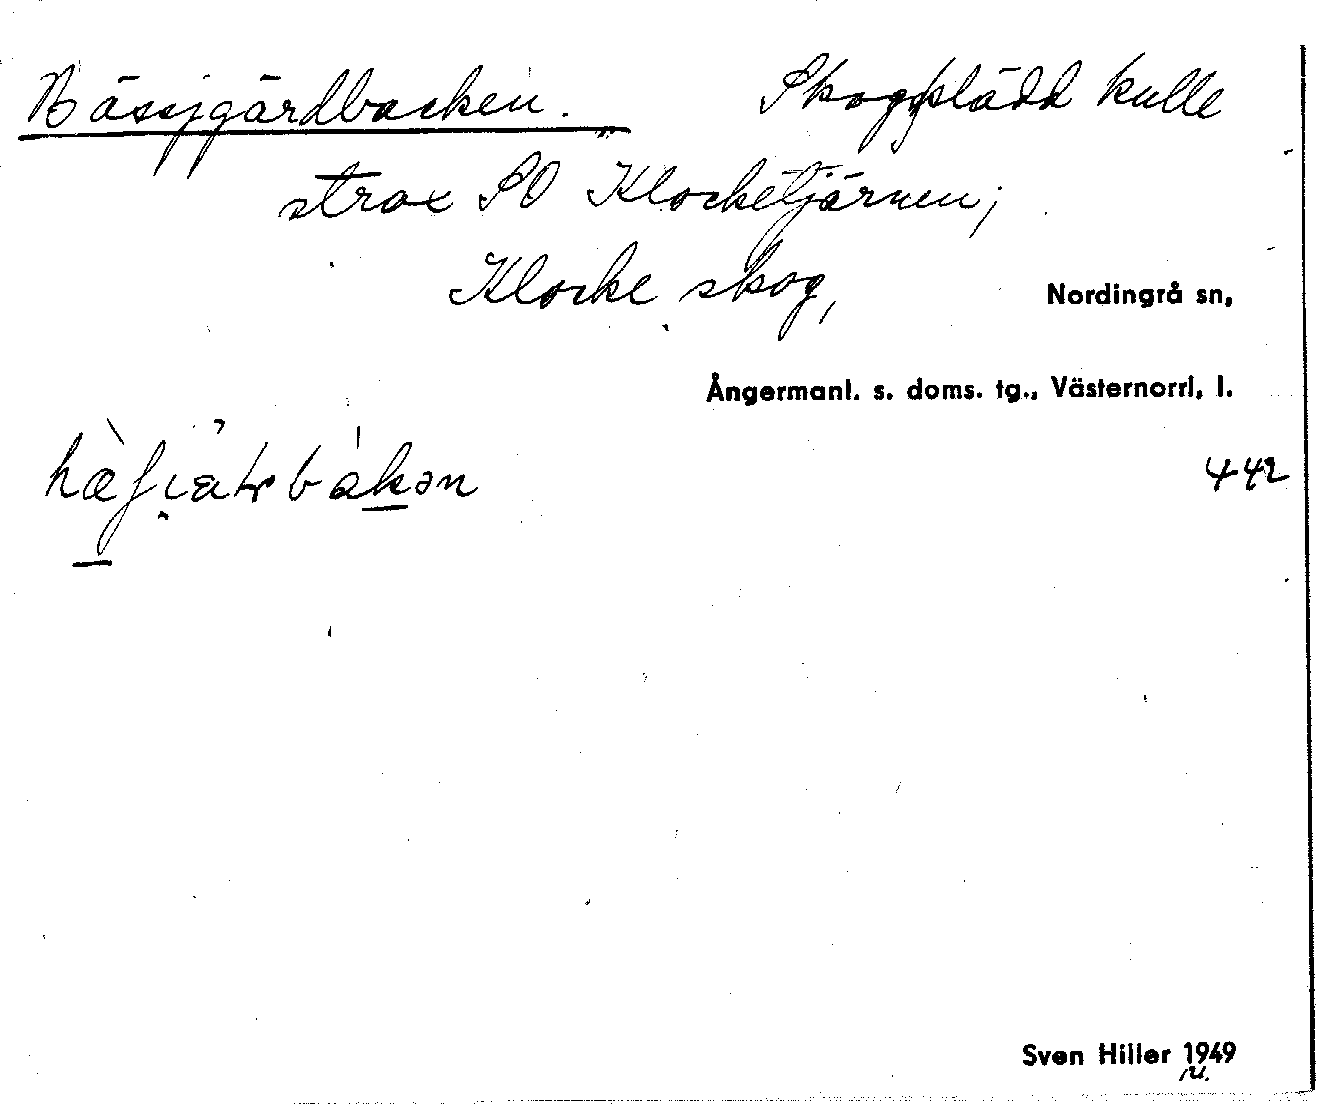 Bässjgärdbacken. Skogklädd kulle
strax SO Klocketjärnen;
Klocke skog, Nordingrå sn,
Ångermanl. s. doms. tg., Västernorrl. l.
442
Sven Hiller 1949